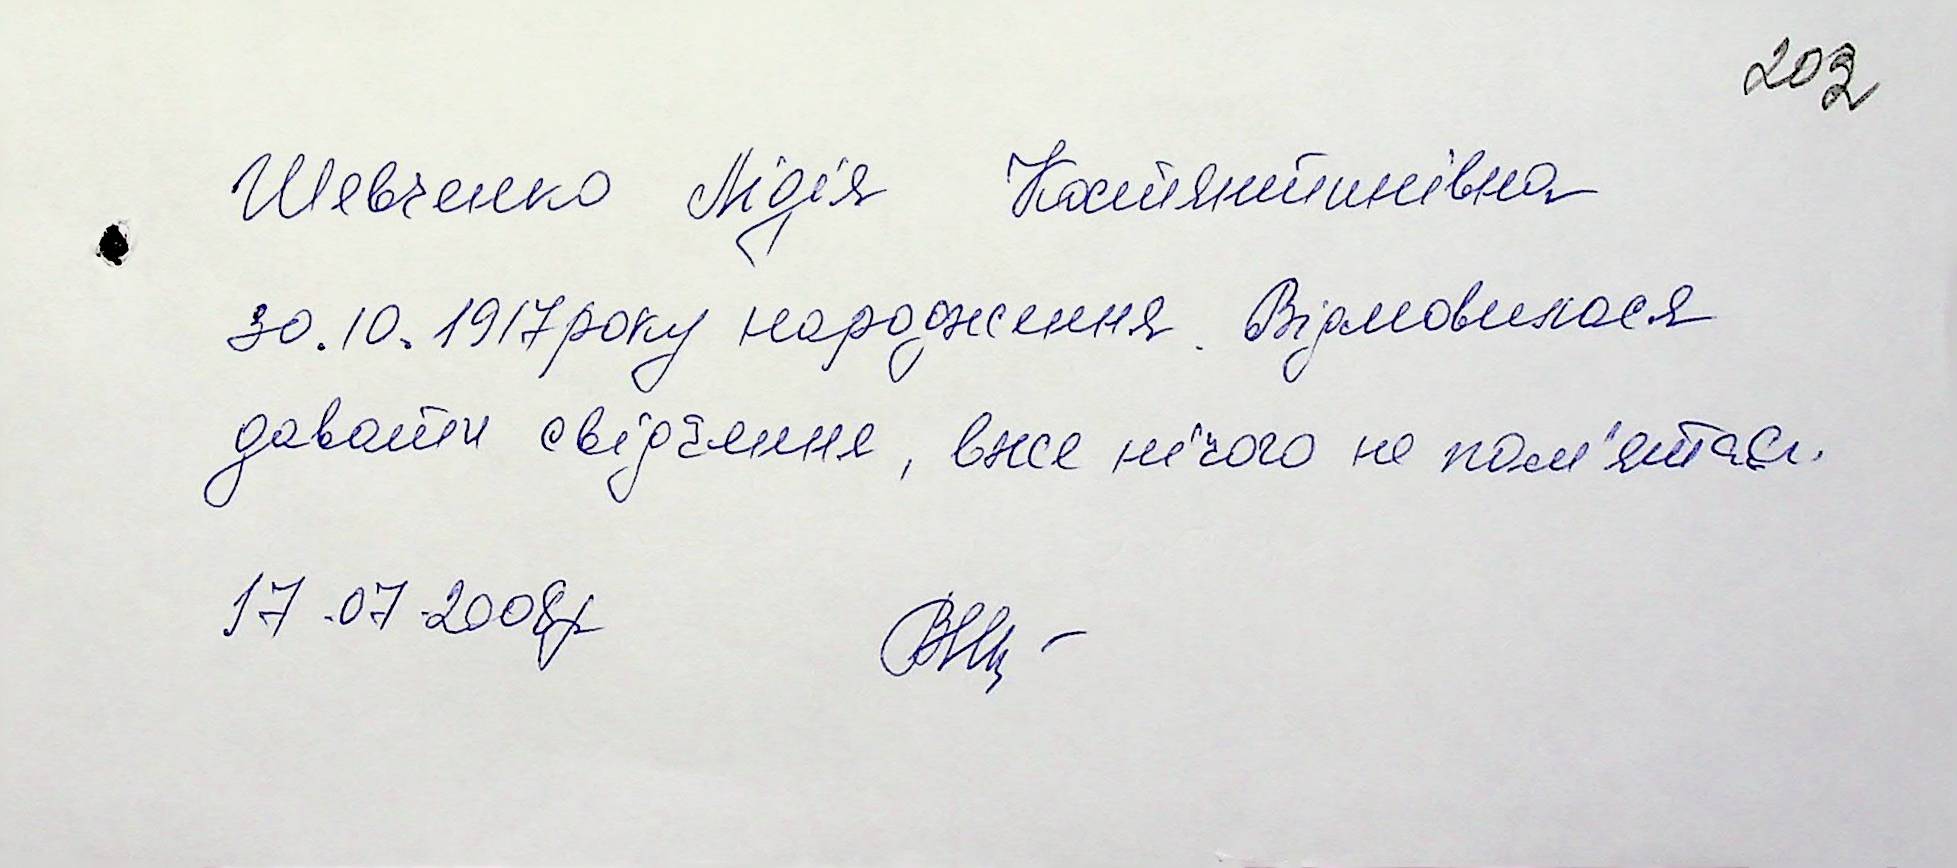 203
Шевченко Лідія Костянтинівна
30.10.1917 року народження. Відмовилася
давати свідчення, вже нічого не пам'ятає.
17.07.2008р